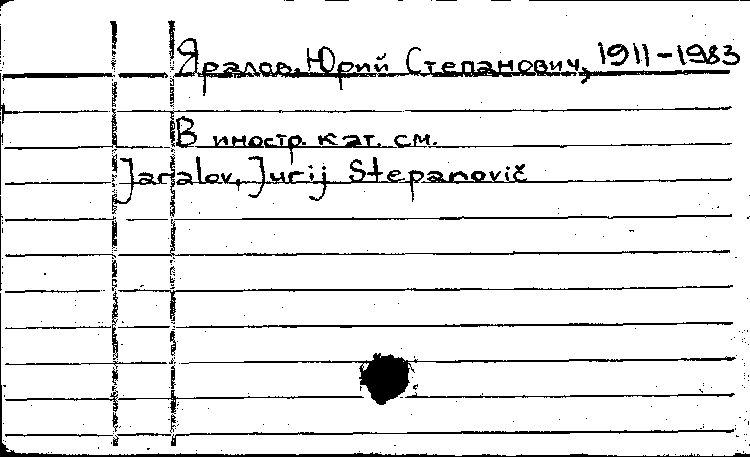 Яралов, Юрий Степанович, 1911-1983
В иностр. кат. см.
Jaralov, Jurij Stepanovič